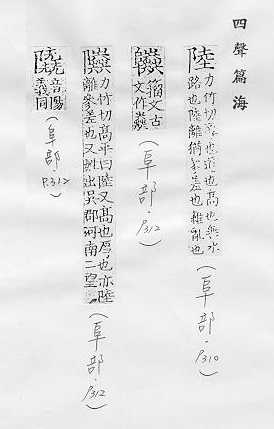 四聲篇海
陸 力竹切 也道也高也無水
路也陸離 參差也雜亂也
(阜部.P.310)
籀文古
文作
(阜部.P.312)
力竹切高平曰陸又高也厚也亦陸
離參差也又姓出吳郡河南二望
(阜部.P.312)
音陽
義同
(阜部.P.312)